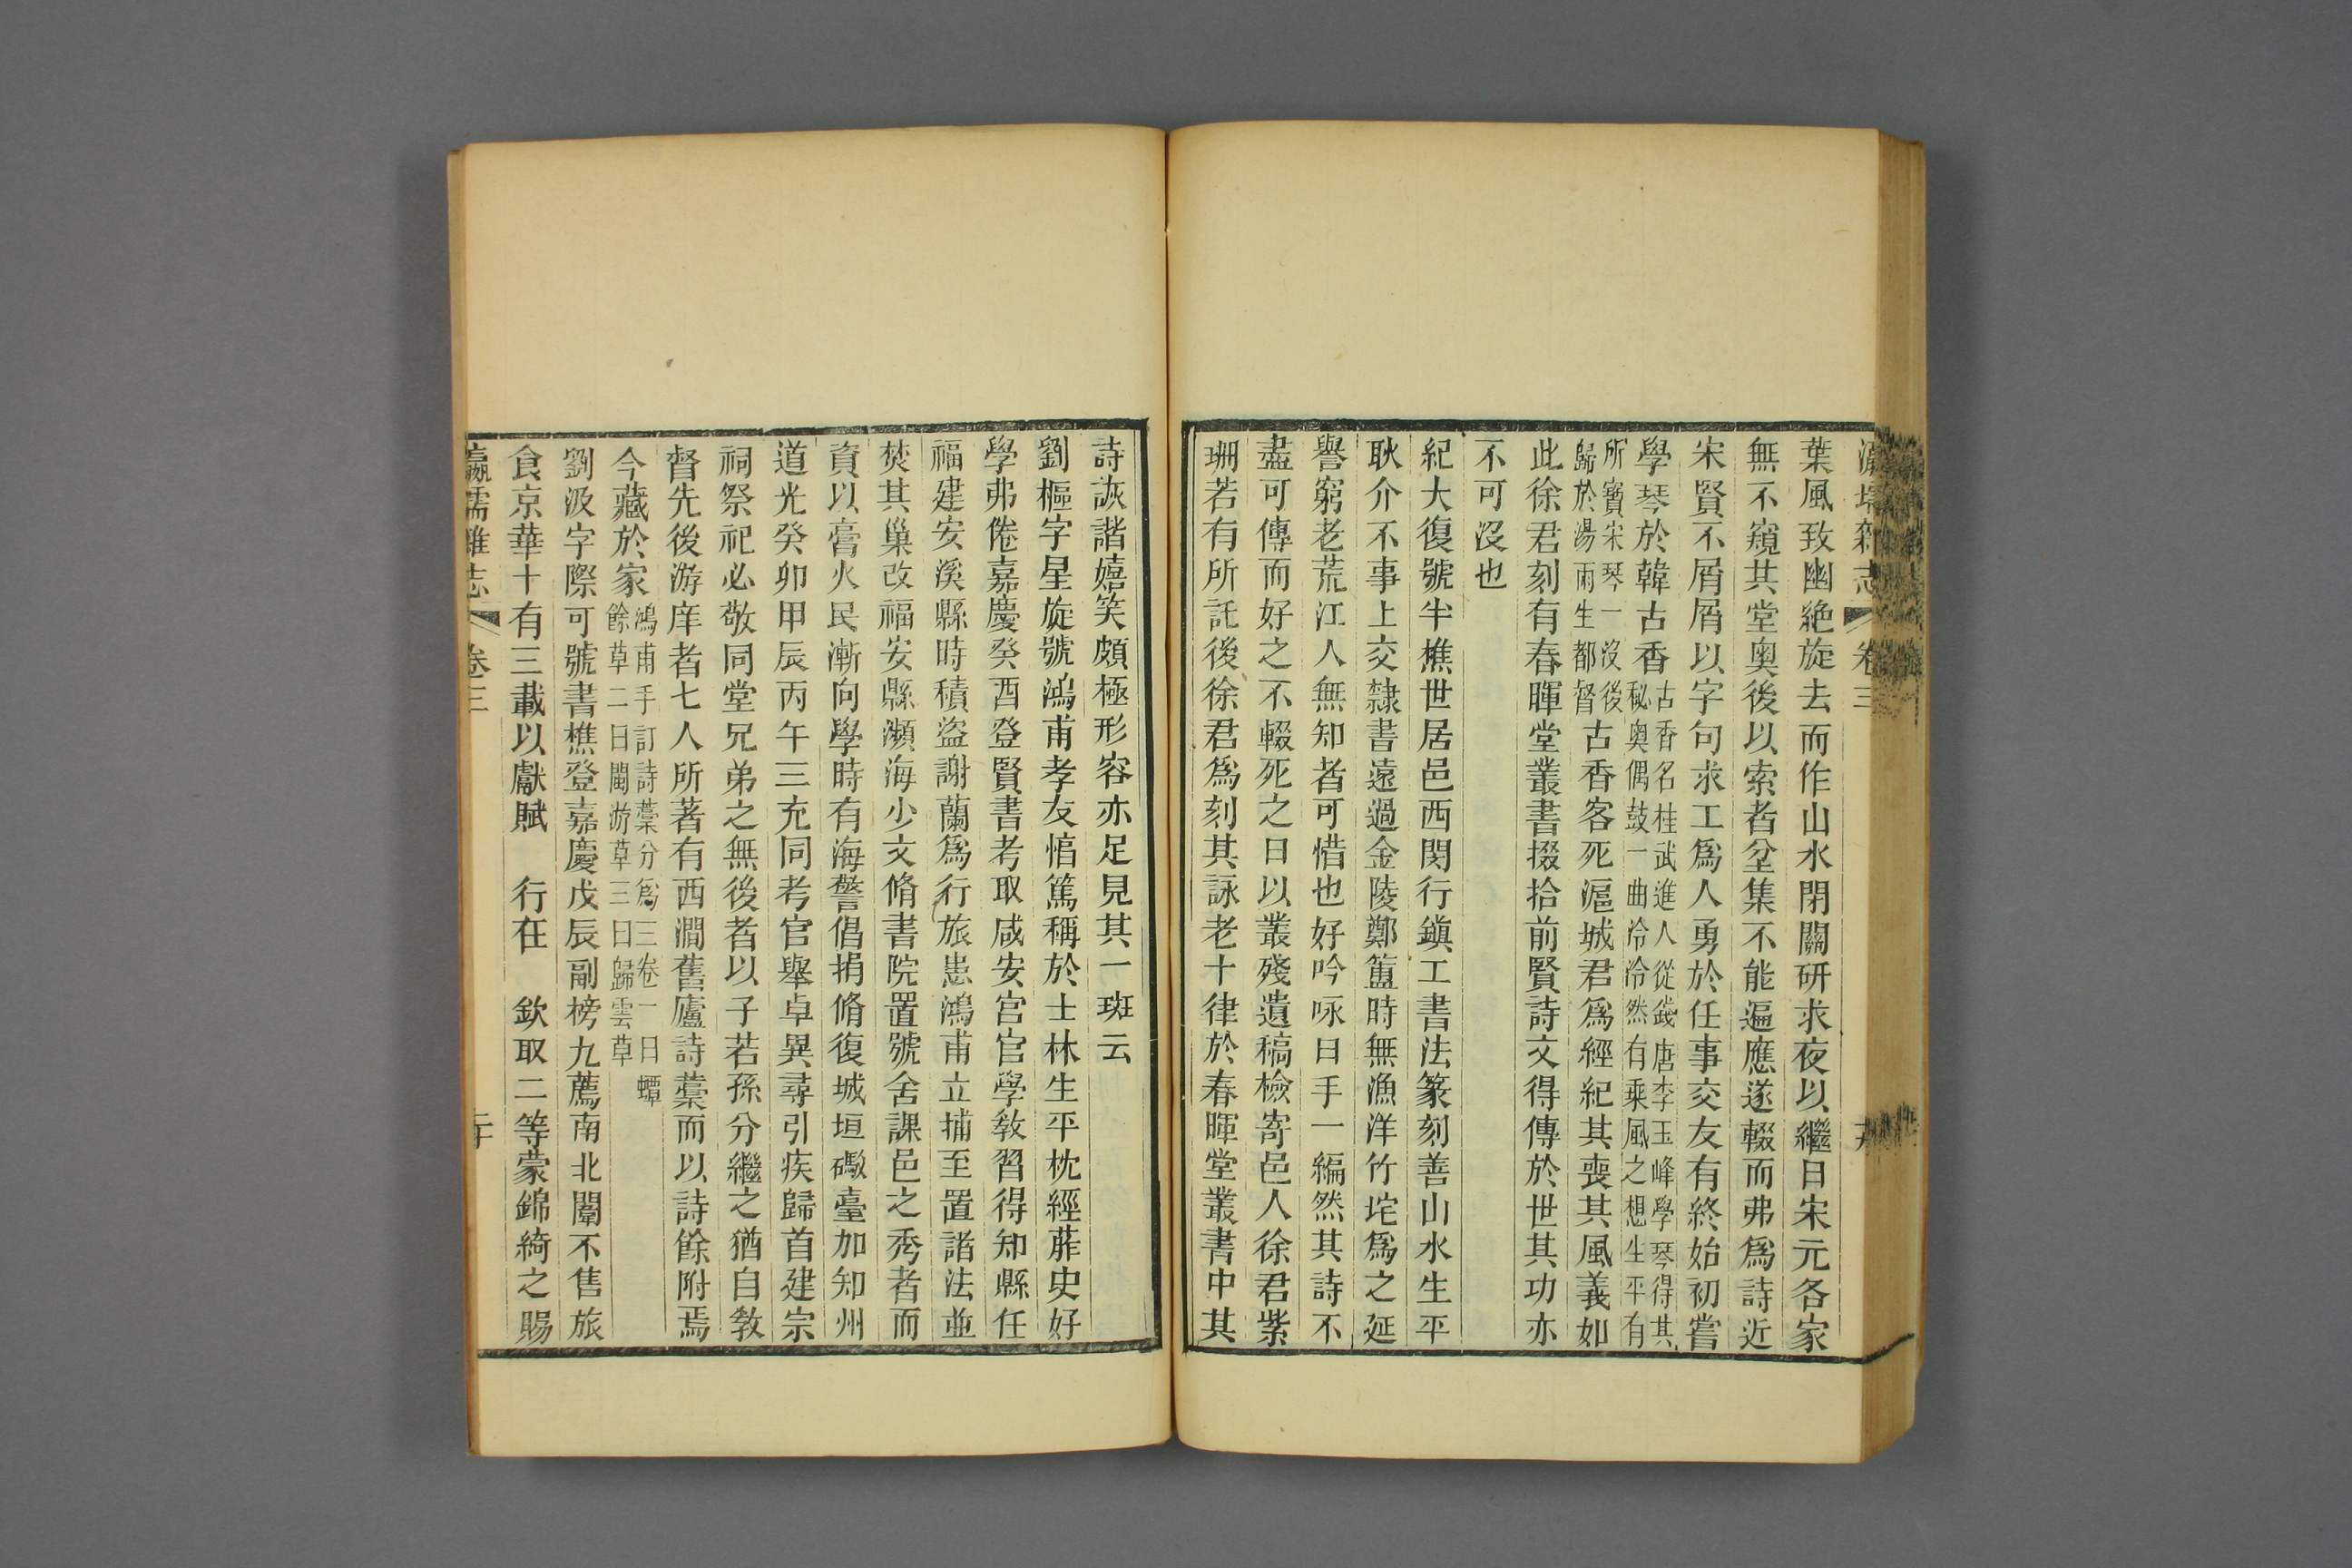 瀛壖雜志 卷三
葉風致幽絶旋去而作山水閉關研求夜以繼日宋元各家
無不窺其堂奧後以索者坌集不能遍應遂輟而弗爲詩近
宋賢不屑屑以字句求工爲人勇於任事交友有終始初嘗
學琴於韓古香古香名桂武進人從錢唐李玉峰學琴得其
秘奥偶鼓一曲泠泠然有乘風之想生平有
所寶宋琴一沒後
歸於湯雨生都督古香客死滬城君爲經紀其喪其風義如
此徐君刻有春暉堂叢書掇拾前賢詩文得傳於世其功亦
不可沒也
紀大復號半樵世居邑西閔行鎮工書法篆刻善山水生平
耿介不事上交隸書遠過金陵鄭簠時無漁洋竹垞爲之延
譽窮老荒江人無知者可惜也好吟咏日手一編然其詩不
盡可傳而好之不輟死之日以叢殘遺稿檢寄邑人徐君紫
珊若有所託後徐君爲刻其詠老十律於春暉堂叢書中其
詩詼諧嬉笑頗極形容亦足見其一斑云
劉樞字星旋號鴻甫孝友悃篤稱於士林生平枕經葄史好
學弗倦嘉慶癸酉登賢書考取咸安宮官學敎習得知縣任
福建安溪縣時積盜謝蘭爲行旅患鴻甫立捕至置諸法並
焚其巢改福安縣瀕海少文脩書院置號舍課邑之秀者而
資以膏火民漸向學時有海警倡捐脩復城垣礮臺加知州
道光癸卯甲辰丙午三充同考官舉卓異尋引疾歸首建宗
祠祭祀必敬同堂兄弟之無後者以子若孫分繼之猶自敎
督先後游庠者七人所著有西澗舊廬詩藁而以詩餘附焉
今藏於家鴻甫手訂詩藁分爲三卷一曰蟫
餘草二曰閩游草三曰歸雲草
劉汲字際可號書樵登嘉慶戊辰副榜九薦南北闈不售旅
食京華十有三載以獻賦　行在　欽取二等蒙錦綺之賜
瀛壖雜志 卷三 二十